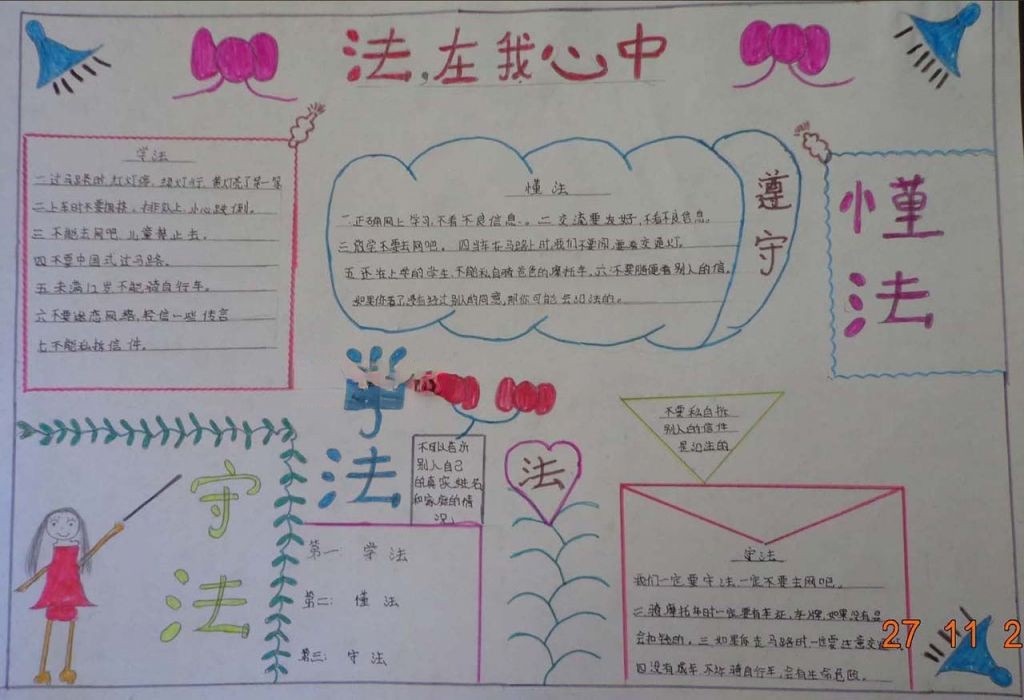 法,在我心中
学法
一过马路时,红灯停,绿灯行,黄灯亮了等一等
二上车时不要拥挤,排队上,小心跌倒。
三 不能去网吧,儿童禁止去。
四不要中国式过马路。
五 未满12岁不能骑自行车。
六不要迷恋网络,轻信一些传言
七不能私拆信件。
懂法
一.正确网上学习,不看不良信息。二 交流要友好,不看不良信息。
三 放学不要去网吧。四当车在马路上时,我们不要闯,要看交通灯。
五 还在上学的学生,不能私自骑爸爸的摩托车。六不要随便看别人的信,
如果你看了没有经过别人的同意,那你可能会犯法的。
遵守
懂法
学法
不可以告诉
别人自己
的真实姓名
和家庭的情
况。
法
不要私自拆
别人的信件
是犯法的
守法
第一 学法
第二: 懂法
第三: 守法
守法
我们一定要守法,一定不要去网吧。
二.骑摩托车时一定要有车证,车牌,如果没有是
会扣钱的。三.如果你走马路时一定要注意交
四没有成年,不许骑自行车,会有生命危险。
27 11 2